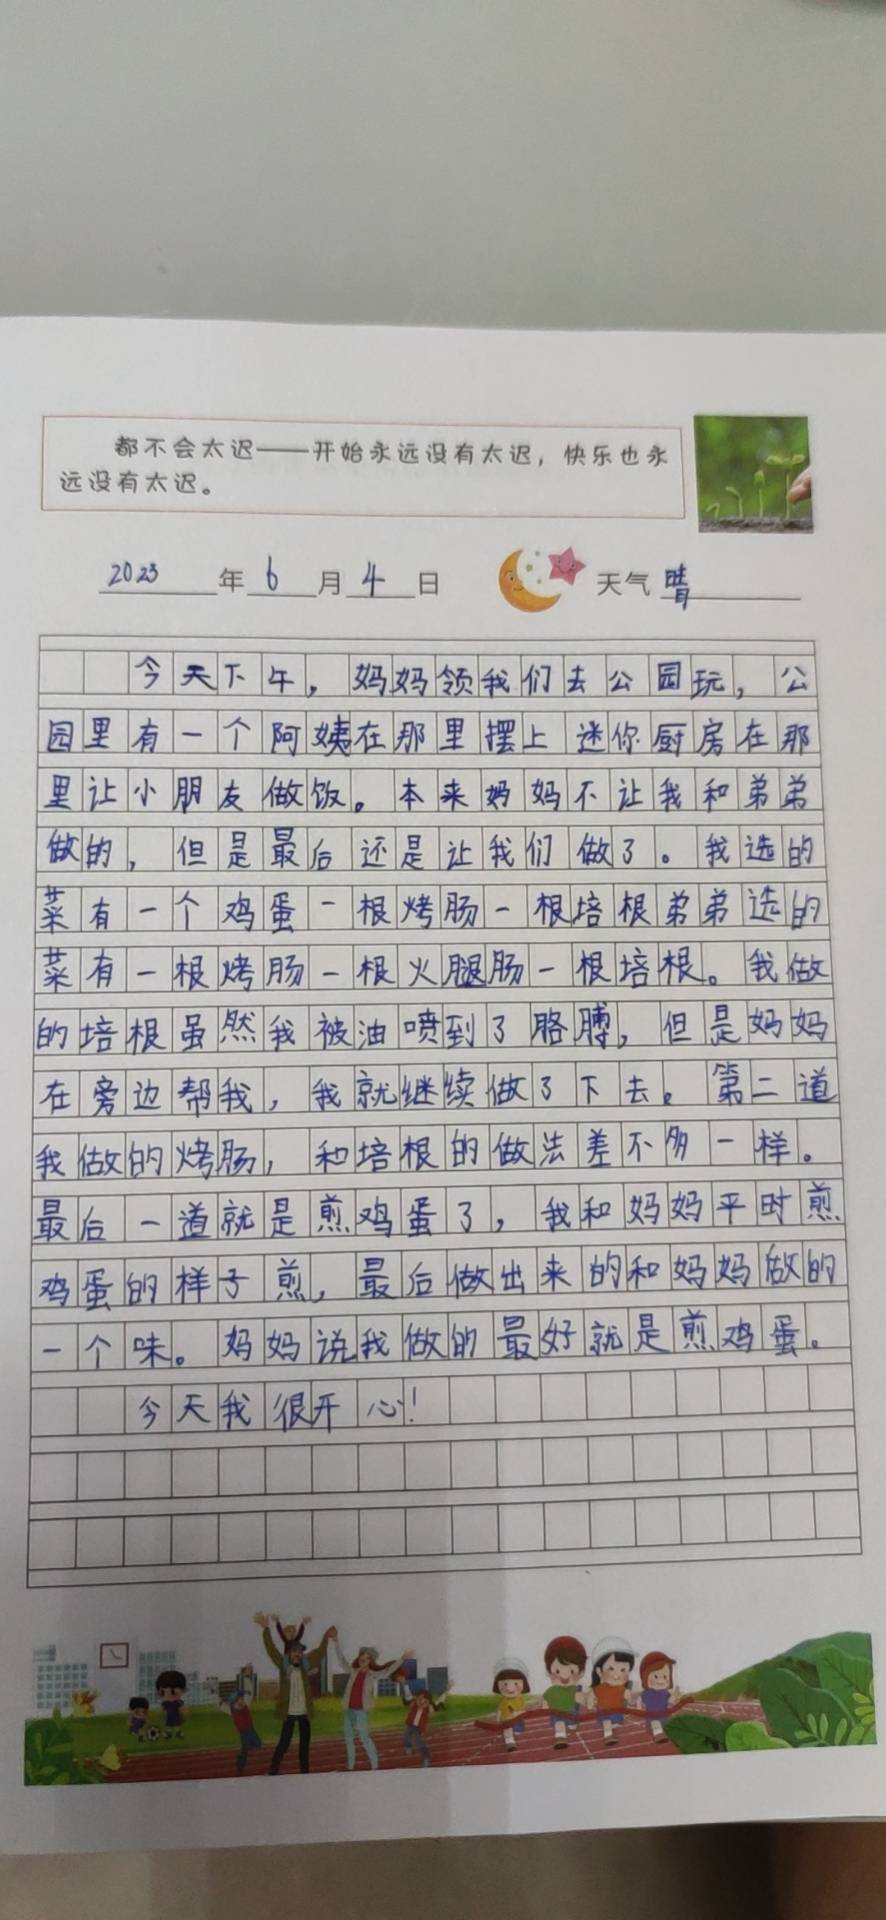 都不会太迟——开始永远没有太迟，快乐也永
远没有太迟。
2023年6月4日 天气晴
今天下午，妈妈领我们去公园玩，公
园里有一个阿姨在那里摆上迷你厨房在那
里让小朋友做饭。本来妈妈不让我和弟弟
做的，但是最后还是让我们做了。我选的
菜有一个鸡蛋一根烤肠一根培根弟弟选的
菜有一根烤肠一根火腿肠一根培根。我做
的培根虽然我被油喷到了胳膊，但是妈妈
在旁边帮我，我就继续做了下去。第二道
我做的烤肠，和培根的做法差不多一样。
最后一道就是煎鸡蛋了，我和妈妈平时煎
鸡蛋的样子煎，最后做出来的和妈妈做的
一个味。妈妈说我做的最好就是煎鸡蛋。
今天我很开心！